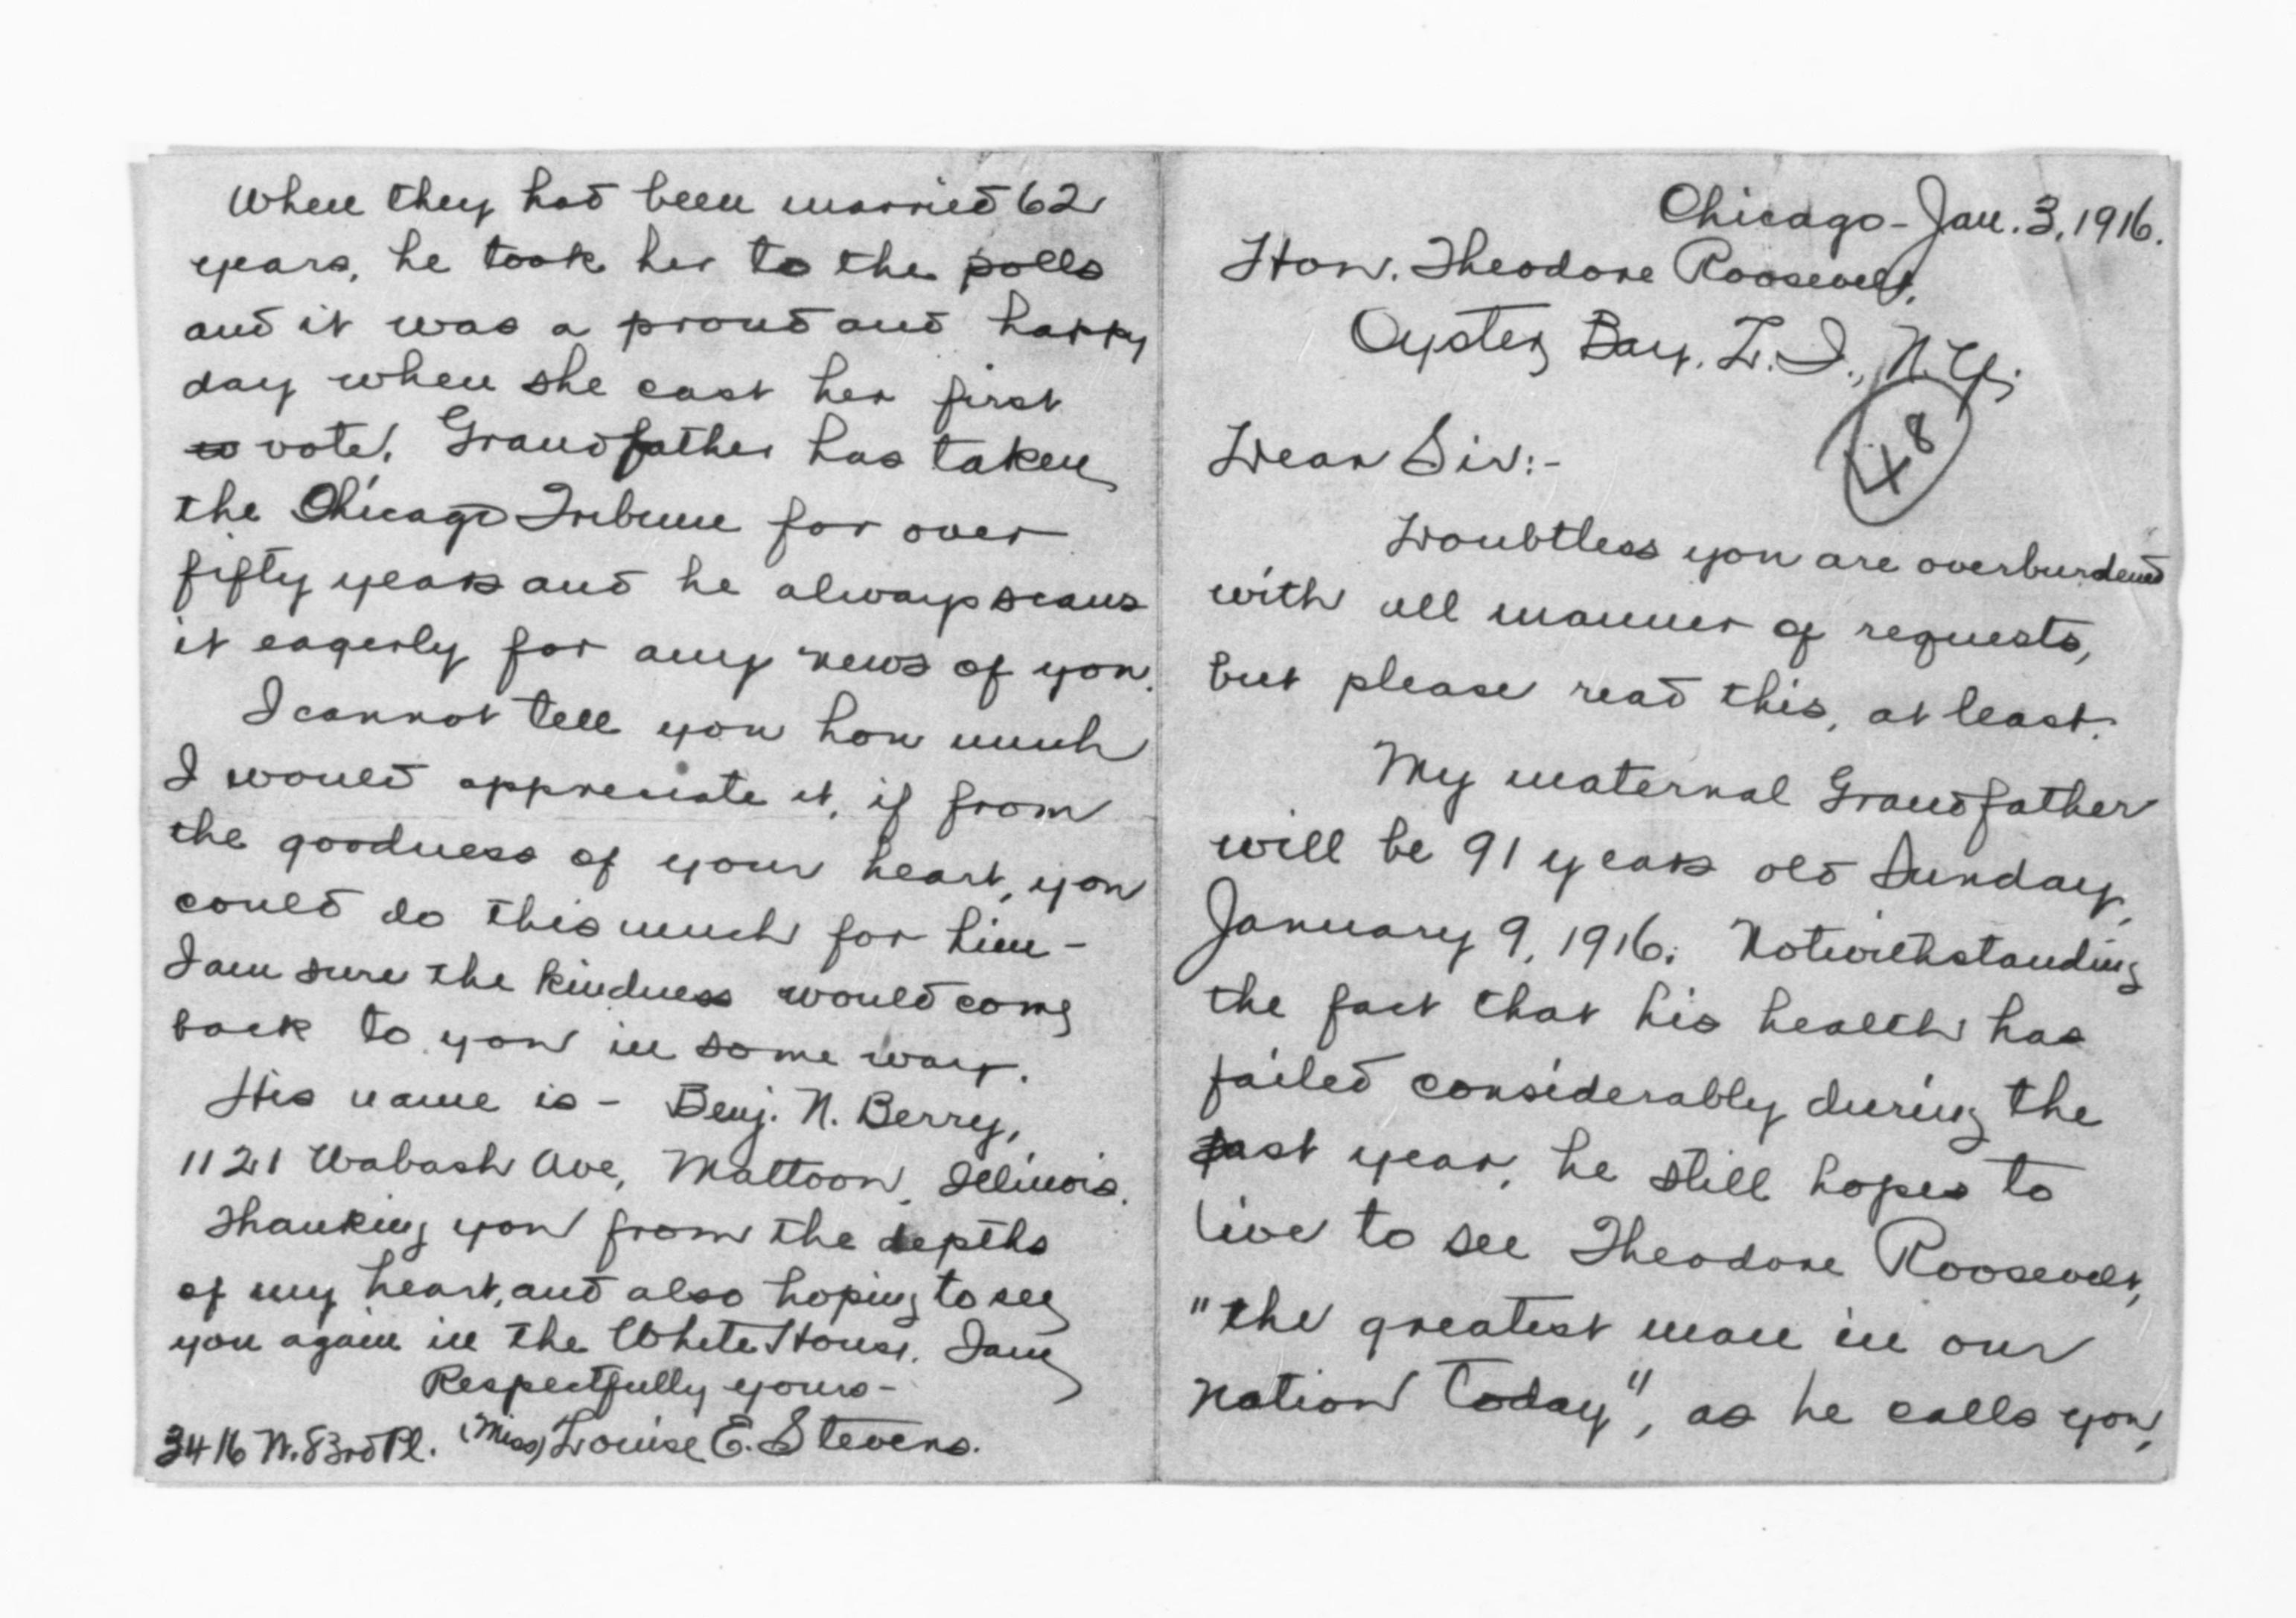 Chicago - Jan. 3, 1916.
Hon. Theodore Roosevelt,
Oyster Bay, L. I., N. Y.
48
Dear Sir:-
Doubtless you are overburdened
with all manner of requests,
but please read this, at least.
My maternal Grandfather
will be 91 years old Sunday,
January 9, 1916. Notwithstanding
the fact that his health has
failed considerably during the
past year, he still hopes to
live to see Theodore Roosevelt,
"the greatest man in our
nation today", as he calls you,
When they had been married 62
years, he took her to the polls
and it was a proud and happy
day when she cast her first
vote. Grandfather has taken
the Chicago Tribune for over
fifty years and he always scans
it eagerly for any news of you.
I cannot tell you how much
I would appreciate it, if from
the goodness of your heart, you
could do this much for him -
I am sure the kindness would come
back to you in some way.
His name is - Benj. N. Berry,
1121 Wabash Ave, Mattoon, Illinois.
Thanking you from the depths
of my heart, and also hoping to see
you again in the White House. I am
Respectfully yours -
(Miss) Louise E. Stevens.
3416 W. 83rd Pl.